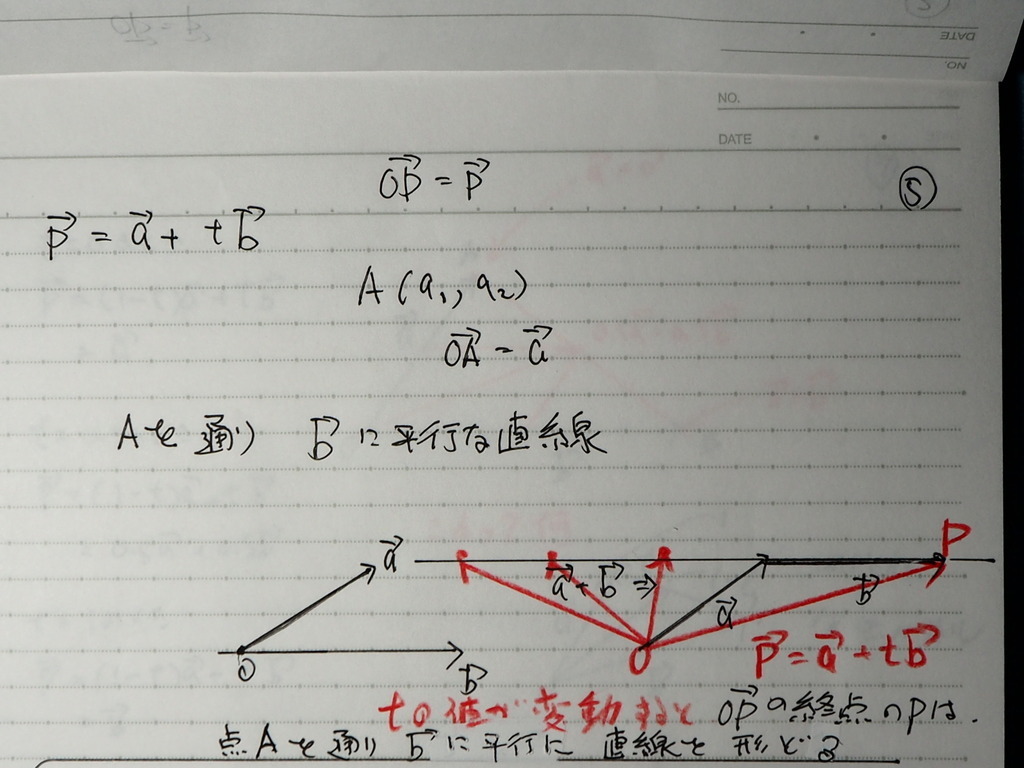 NO.
DATE
$\overrightarrow{OP} = \vec{p}$
⑤
$\vec{p} = \vec{a} + t\vec{b}$
A(a₁, a₂)
$\overrightarrow{OA} = \vec{a}$
Aを通り $\vec{b}$ に平行な直線
$\vec{a}$
P
$\vec{a} + \vec{b}$ ⇒
$\vec{a}$
$\vec{b}$
O
$\vec{b}$
O
$\vec{p} = \vec{a} + t\vec{b}$
tの値が変動すると $\overrightarrow{OP}$ の終点のPは.
点Aを通り $\vec{b}$ に平行に 直線を 形どる